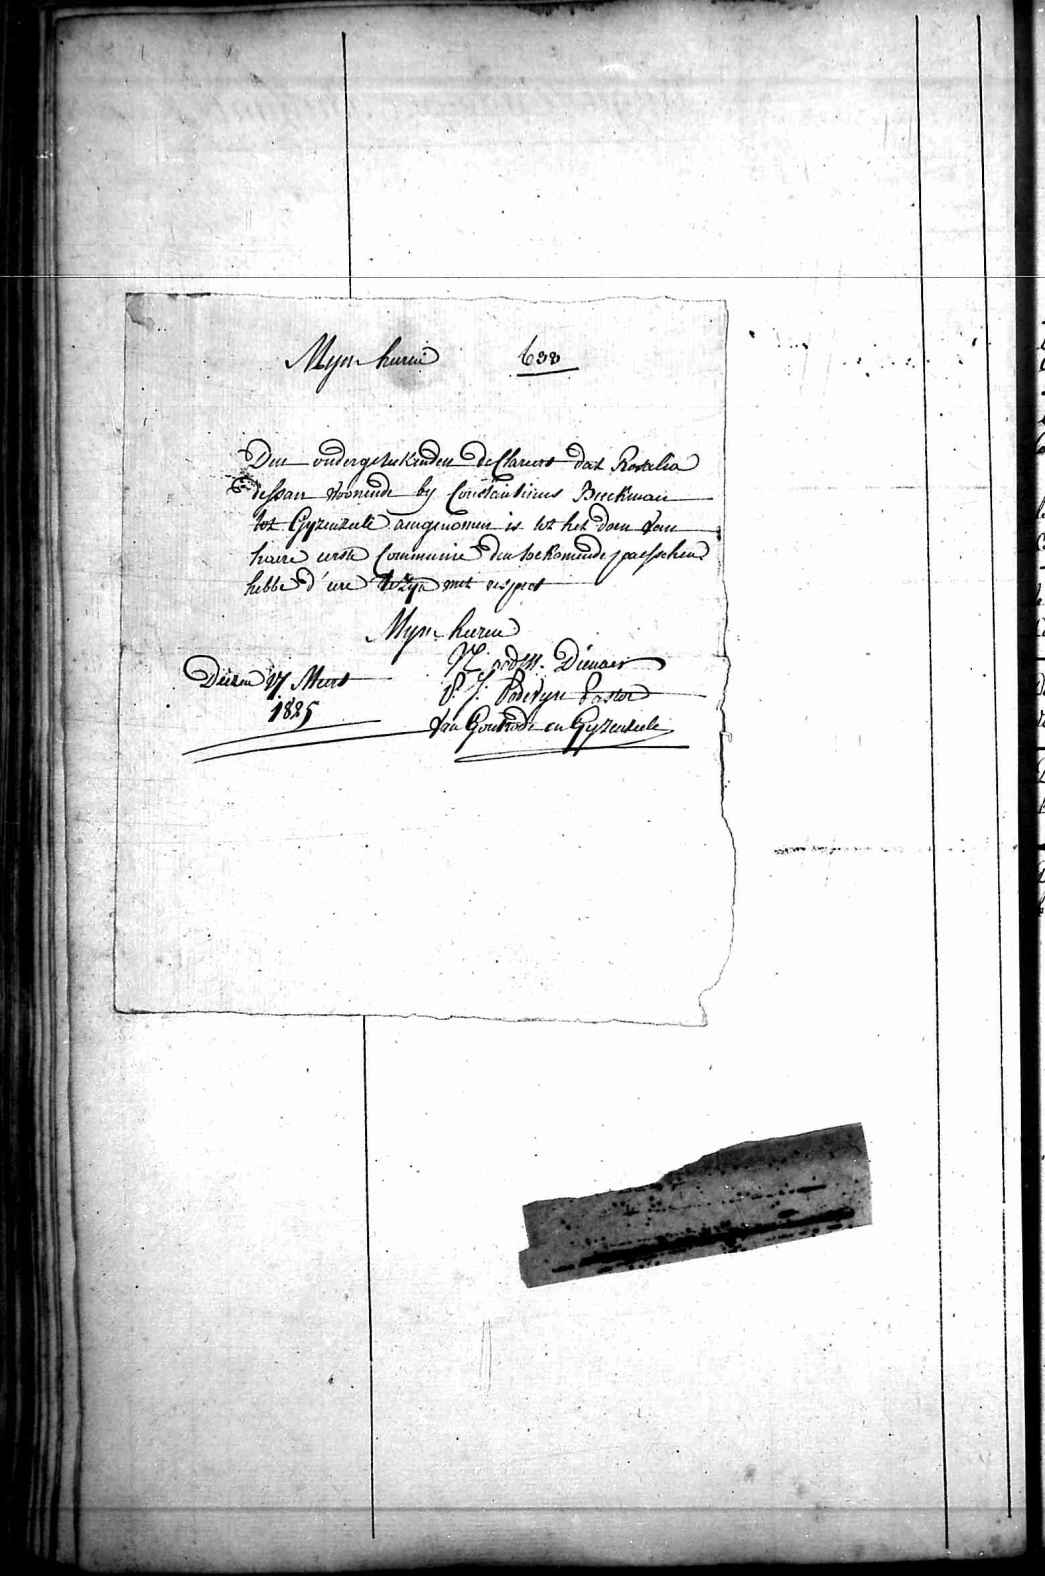 Myn heeren 638
Den ondergeteekenden declareert dat Rosalia
dessau woonende by Constantinus Beeckman
tot Gyzenzeele aengenomen is tot het doen van
haere eerste Communie den toekomende paesschen
hebbe d'eere te zyn met respect
Myn heeren
UE ootm. Dienaer
Dezen 17 Meert
P. J. Podevyn Pastor
1825
van Gontrode en Gyzenzeele